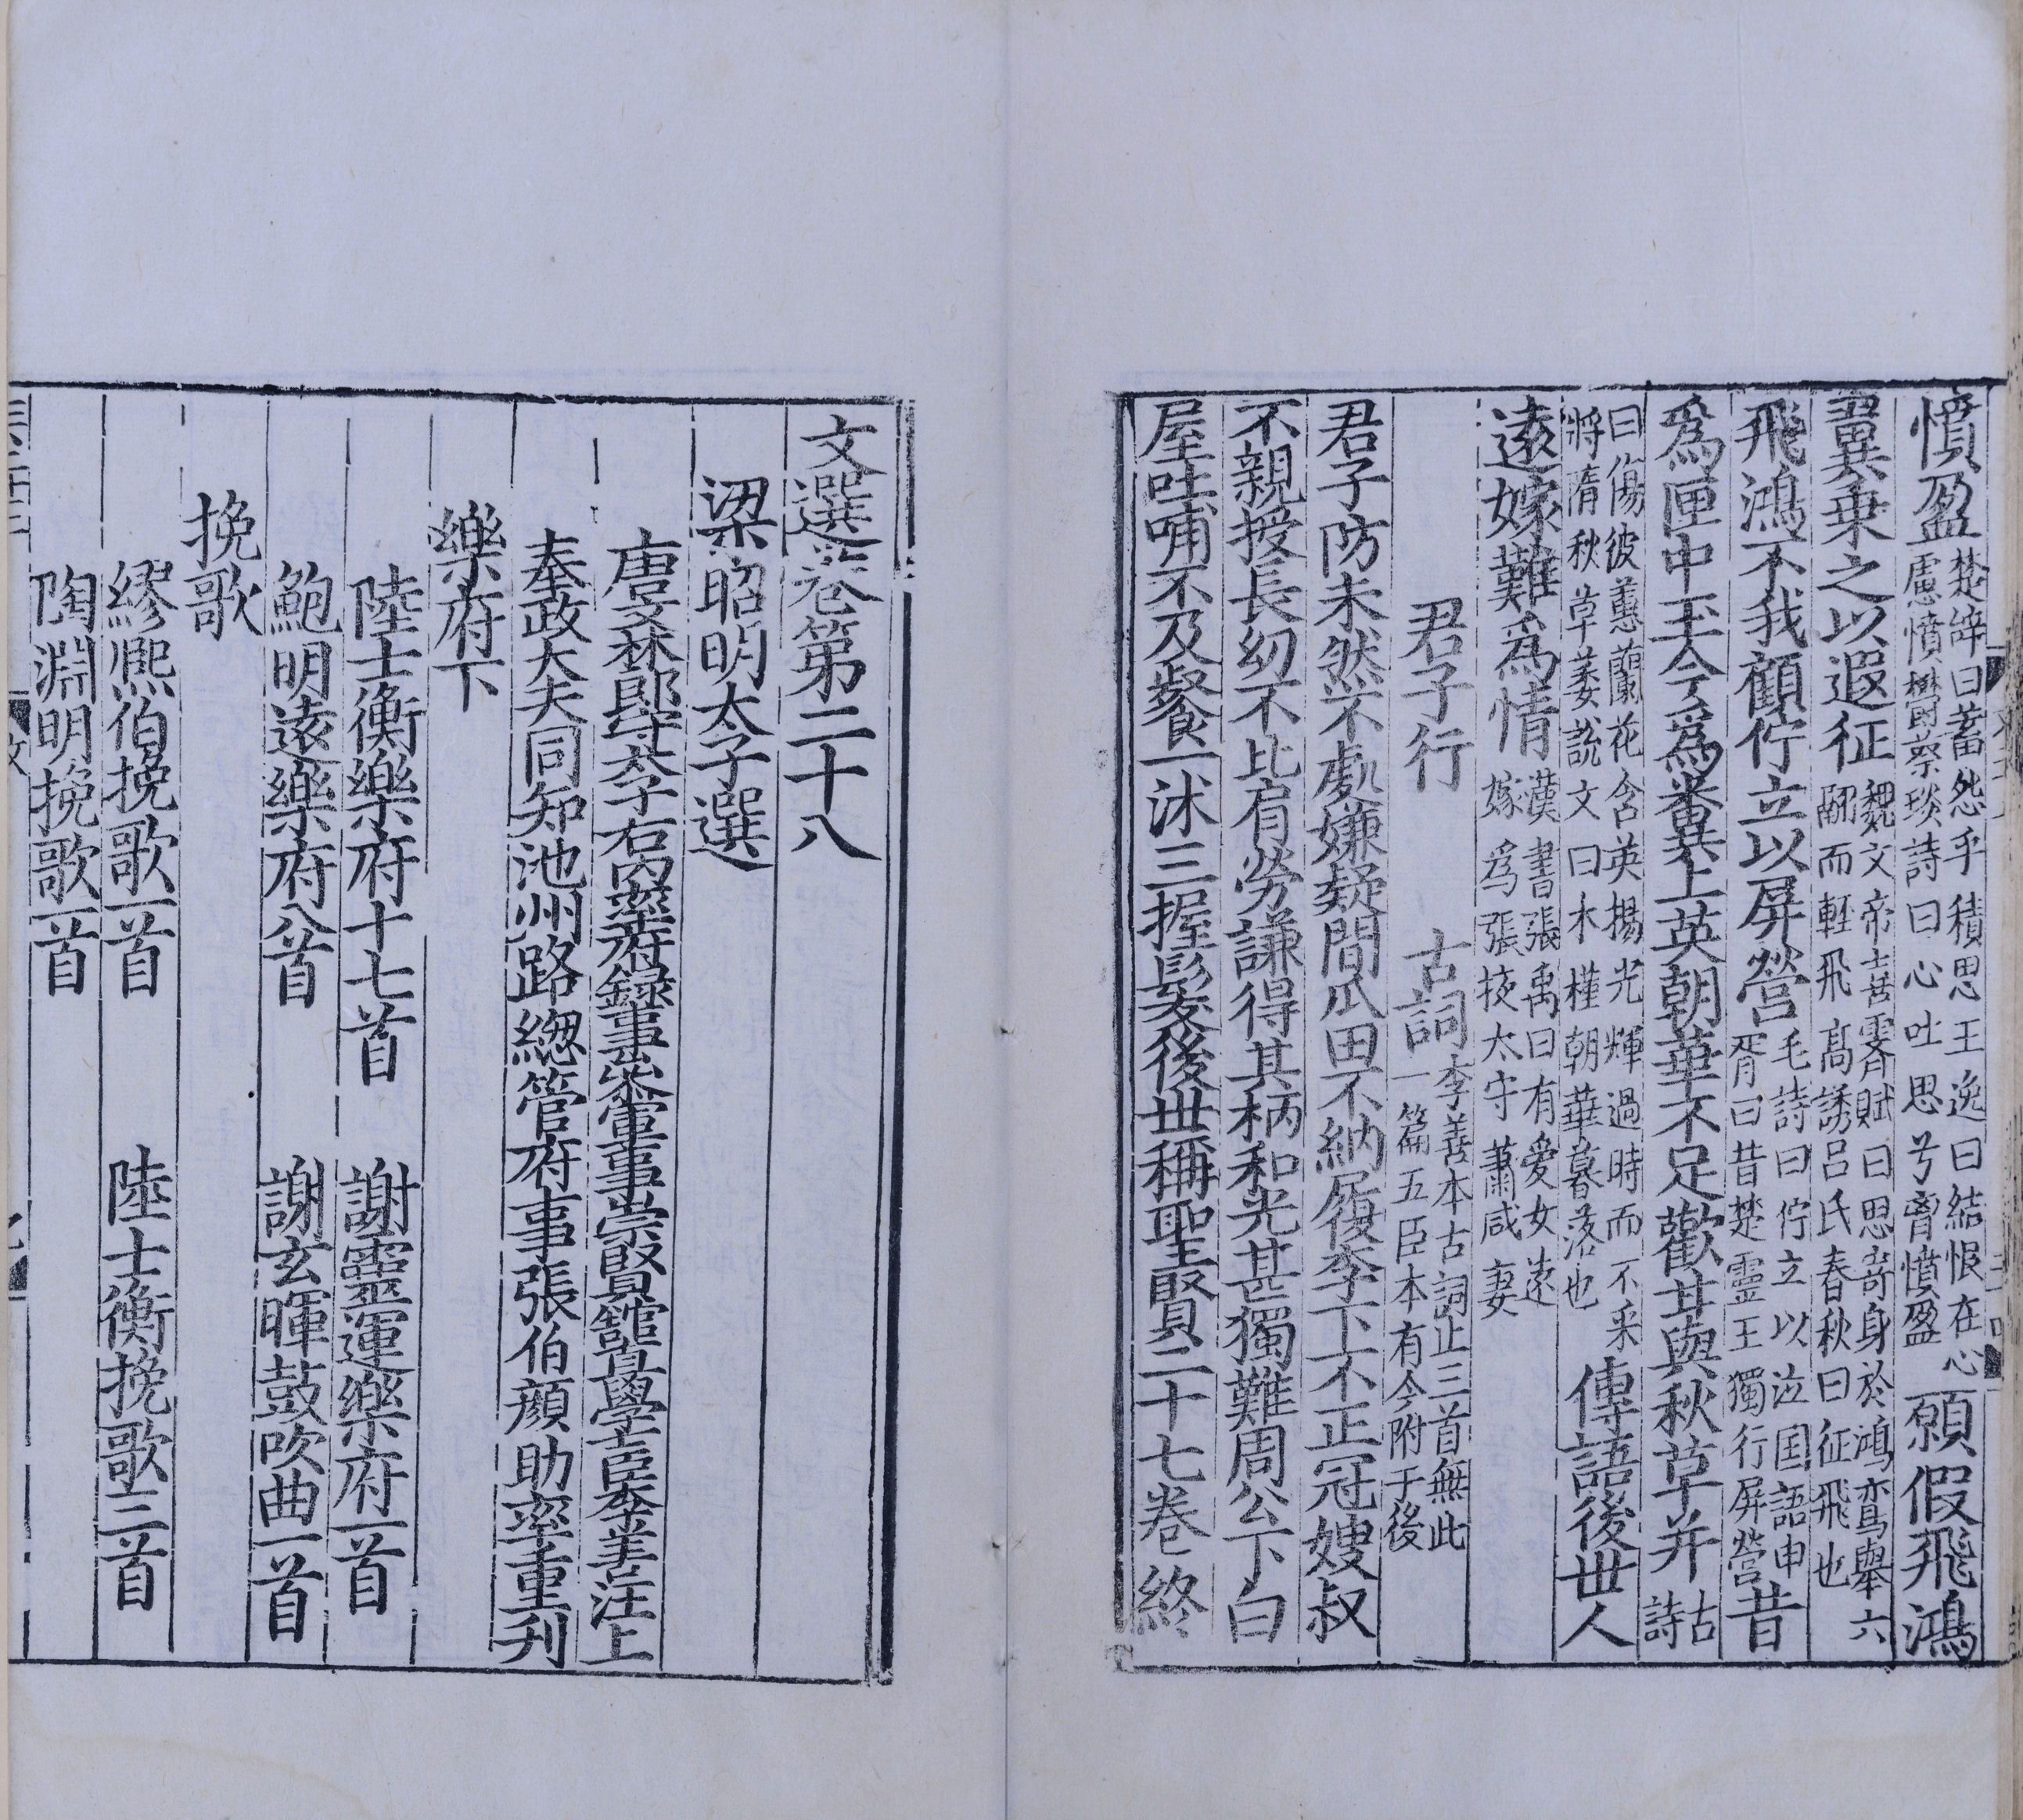 憤盈楚辞曰蓄怨乎積思王逸曰結恨在心慮憤樹蔡琰詩曰心吐思兮胷憤盈願假飛鴻
翼乗之以遐征魏文帝喜霽賦曰思寄身於鴻鸞舉六翮而輕飛高誘呂氏春秋曰征飛也
飛鴻不我顧佇立以屏營毛詩曰佇立以泣国語申胥曰昔楚靈王獨行屏營昔
爲匣中玉今爲糞上英朝華不足歡甘與秋草并古詩
曰傷彼蕙蘭花含英揚光輝過時而不采將隋秋草萎說文曰木槿朝華暮落也傳語後世人
遠嫁難為情漢書張禹曰有愛女遠嫁爲張掖太守蕭咸妻
君子行　古詞李善本古詞止三首無此一篇五臣本有今附于後
君子防未然不處嫌疑間瓜田不納履李下不正冠嫂叔
不親授長㓜不比肩勞謙得其柄和光甚獨難周公下白
屋吐哺不及餐一沐三握髮後世稱聖賢二十七卷終
文選卷第二十八
梁昭明太子選
唐文林郎守太子右内率府録事叅軍事崇賢館直學士臣李善注上
奉政大夫同知池州路總管府事張伯顔助率重刊
樂府下
陸士衡樂府十七首　謝靈運樂府一首
鮑明遠樂府八首　謝玄暉鼓吹曲一首
挽歌
繆熙伯挽歌一首　陸士衡挽歌三首
陶淵明挽歌一首